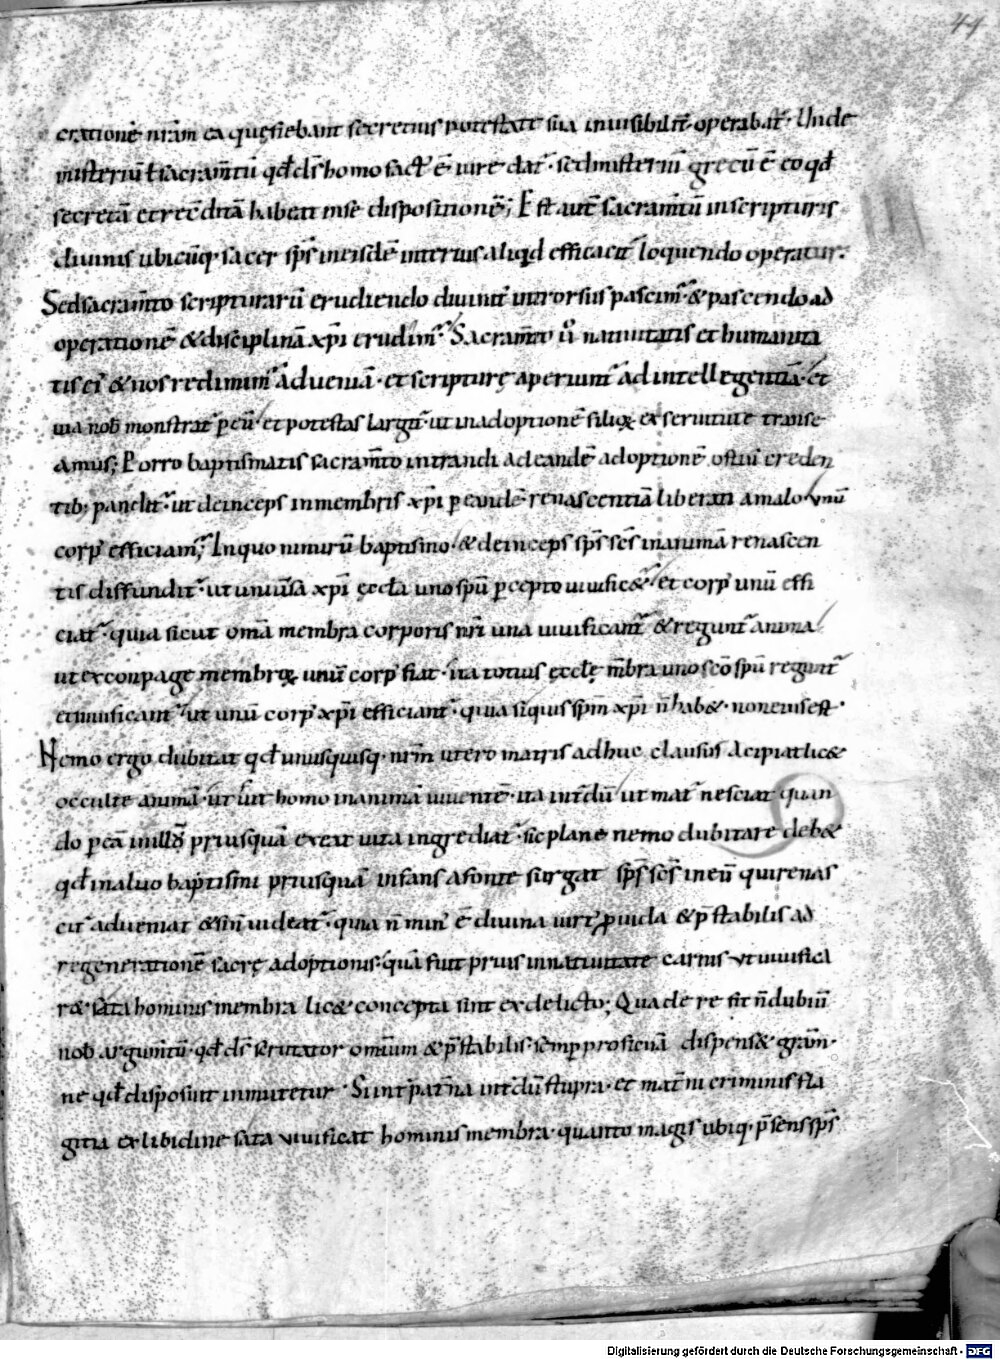 44
erationē nrām ea quę fiebant secretius potestate sua inuisibilit̄ operabat̄. Unde
misteriū ł sacramtū qđ ds̄ homo fact᾿ ē iure dat̄. sed misteriū grecū ē eo qđ
secretā et recditā habeat in se dispositionē; Est aut̄ sacramtū in scripturis
diuinis ubicūq. sacer sps̄ in eisdē interius aliqd efficacit̄ loquendo operatur.
Sed sacramto scripturarū erudiendo diuinit̄ introrsus pascim᾿ & pascendo ad
operationē & disciplinā xp̄i erudim᾿. Sacramto ū natiuitatis et humanita
tis ei᾿ & nos redimim᾿ ad ueniā. et scripturę aperiunt̄ ad intellegentiā. et
uia nob̄ monstrat̄ p eū et potestas largit̄ ut in adoptionē filioꝝ ex seruitute transe
amus; Porro baptismatis sacramto intrandi ad eandē adoptionē ostiū creden
tib; pandit̄. ut deinceps in membris xp̄i p eandē renascentiā liberati a malo unū
corp᾿ efficiam᾿; In quo nimirū baptismo & deinceps sps̄ scs̄ in animā renascen
tis diffundit̄. ut uniūsa xp̄i ęccła uno spū pcepto uiuific&̄ et corp᾿ unū effi
ciat̄. quia sicut omā membra corporis nr̄i una uiuificant̄ & regunt̄ anima
ut ex conpage membroꝝ unū corp᾿ fiat. ita totius ęccłę mb̄ra uno sc̄o spū regunt̄
et uiuificant̄ ut unū corp᾿ xp̄i efficiant̄. quia siquis spm̄ xp̄i n̄ hab&. non eius est.
Nemo ergo dubitat qđ unusquisq. nrm̄ utero matris adhuc clausus accipiat lic&
occulte animā. ut sit homo in animā uiuentē. ita intdū ut mat̄ nesciat quan
do p eā in illū priusquā exeat uita ingrediat̄. sic plane nemo dubitare deb&
qđ in aluo baptismi priusquā infans a fonte surgat sps̄ scs̄ in eū qui renas
cit̄ adueniat & si n̄ uideat̄. quia n̄ min᾿ ē diuina uirt᾿ ꝓuida & p̄stabilis ad
regenerationē sacrę adoptionis. quā fuit prius in natiuitate carnis ut uiuifica
r& sata hominis membra lic& concepta sint ex delicto; Qua de re sit n̄ dubiū
nob̄ argumtū. qđ ds̄ scrutator omium & p̄stabilis semp pro sic uā dispens& gram̄.
ne qđ disposuit inmutetur. Si intpat̄na intdū stupra. et mat̄ni criminis fla
gitia ex libidine sata uiuificat hominis membra. quanto magis ubiq. p̄sens sps̄
Digitalisierung gefördert durch die Deutsche Forschungsgemeinschaft - DFG